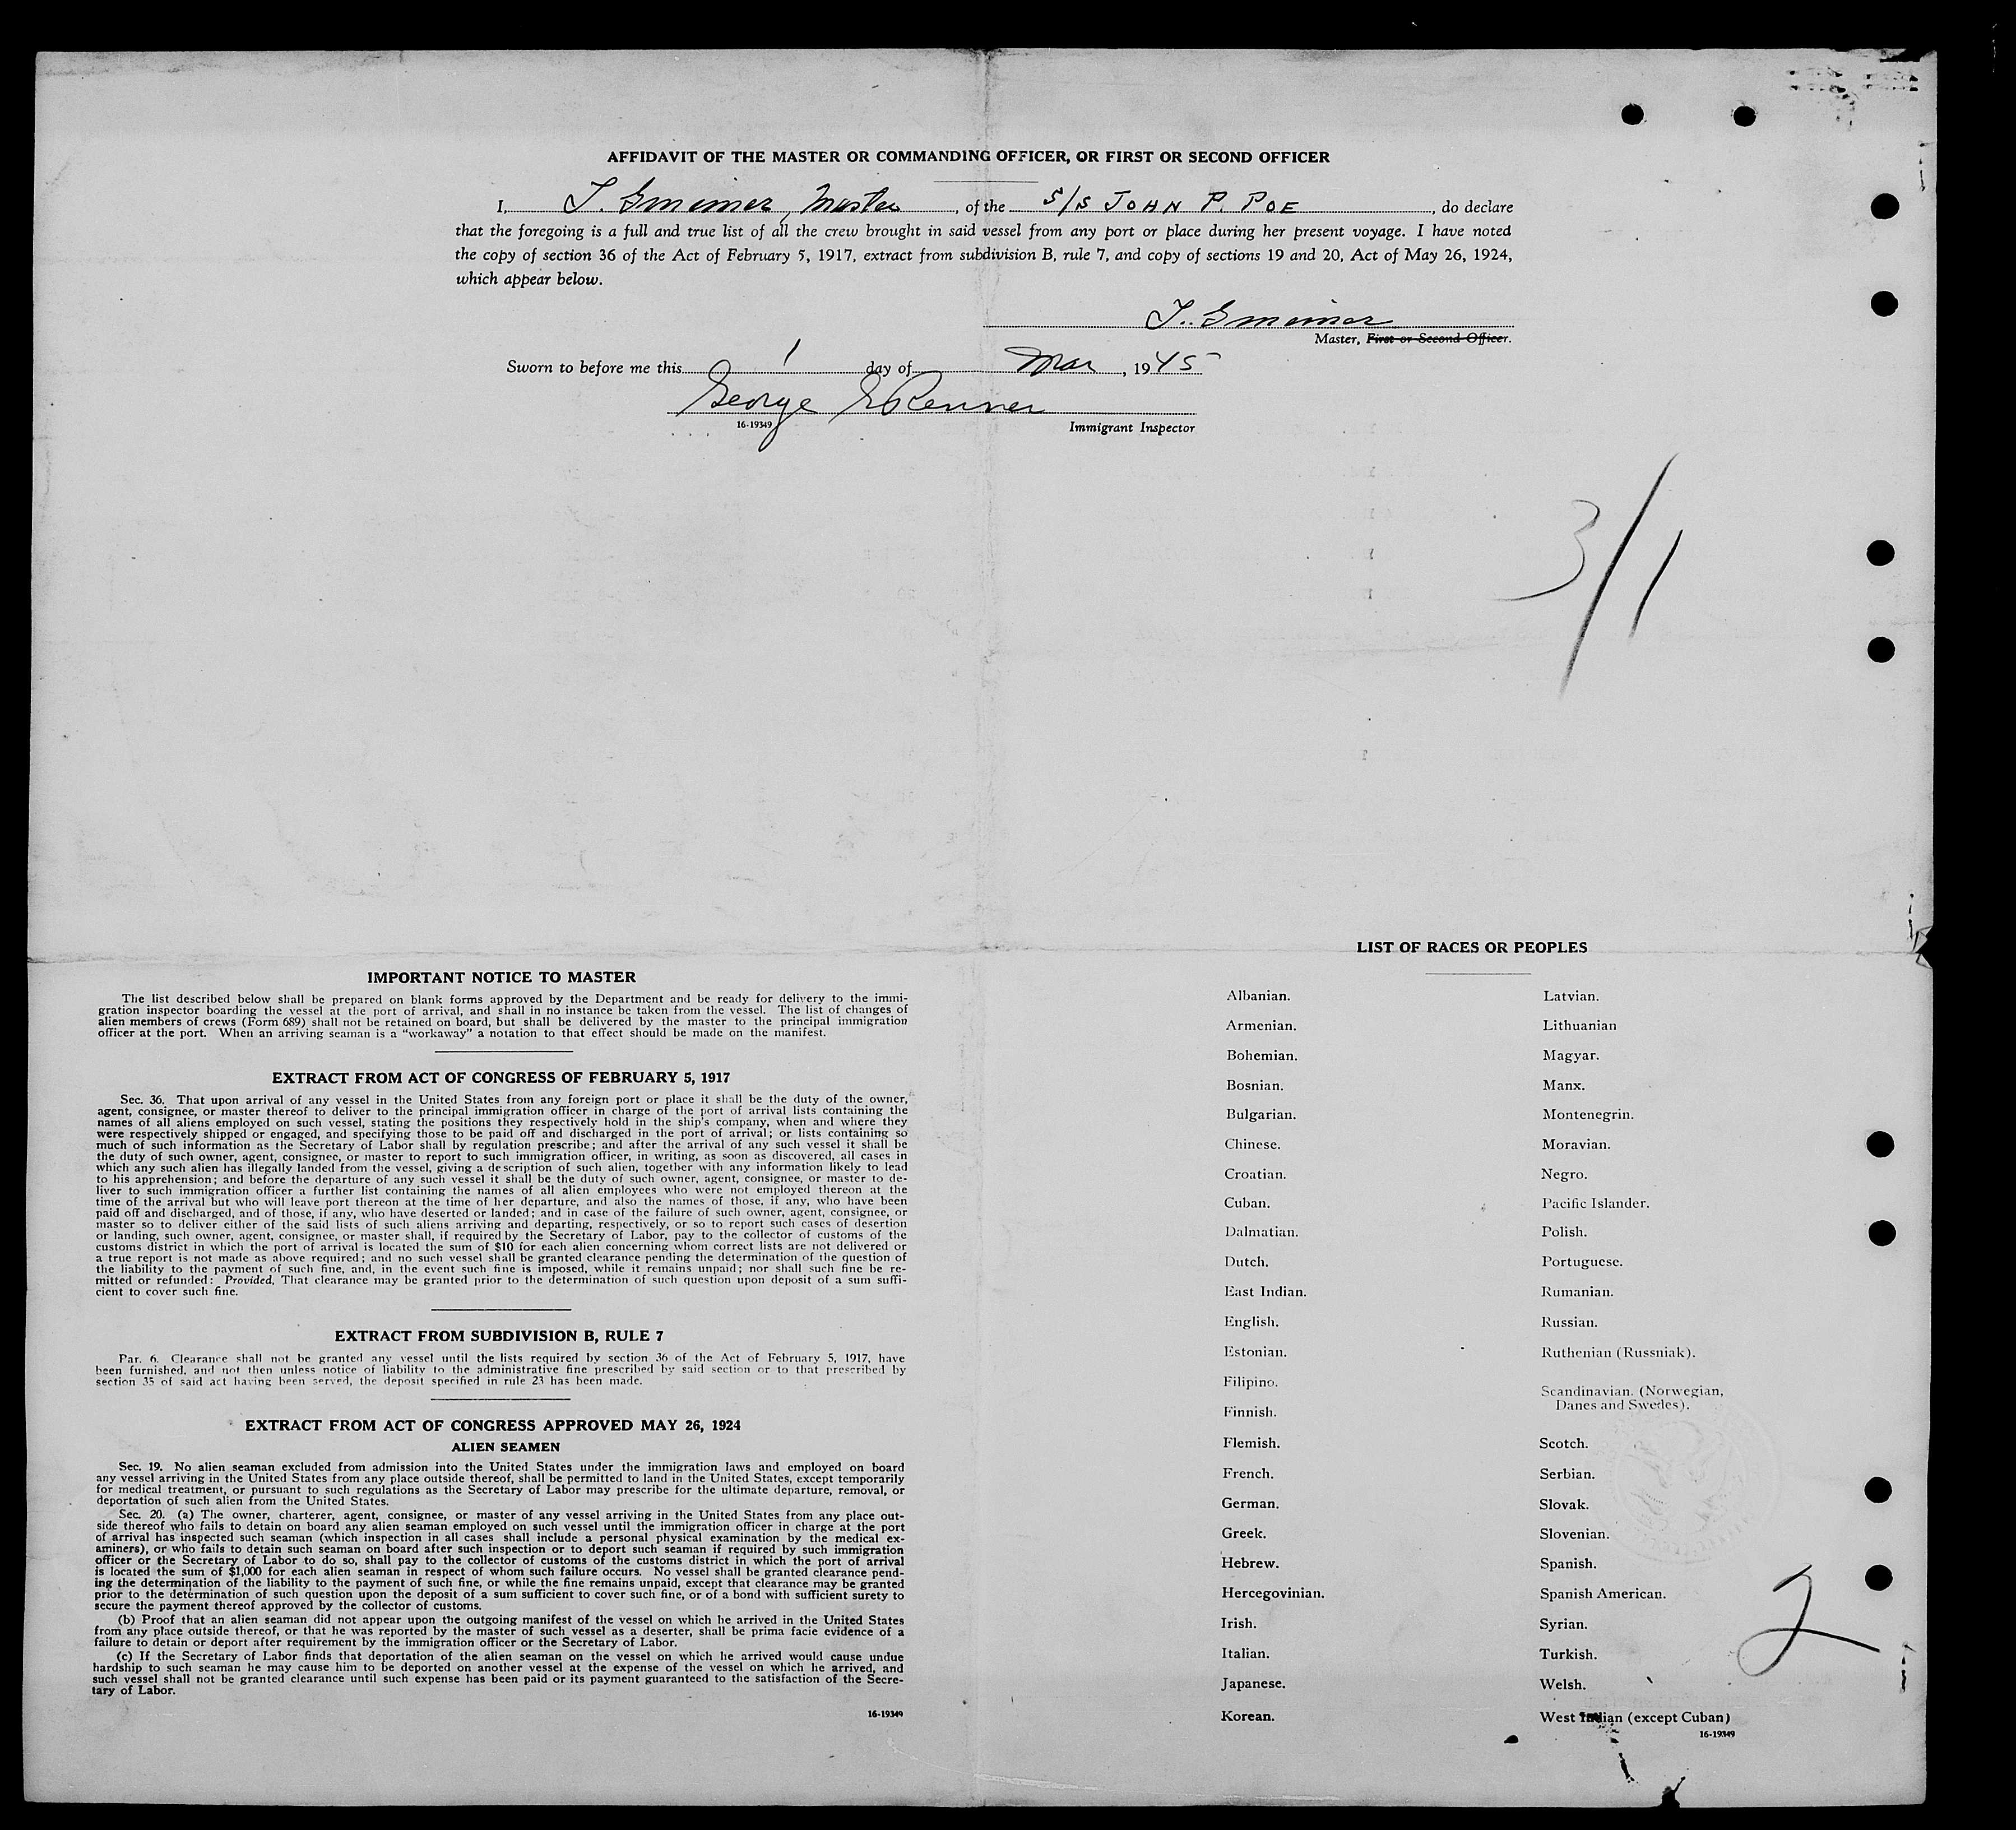 AFFIDAVIT OF THE MASTER OR COMMANDING OFFICER, OR FIRST OR SECOND OFFICER
I, Master, of the S/S JOHN P. POE, do declare
that the foregoing is a full and true list of all the crew brought in said vessel from any port or place during her present voyage. I have noted
the copy of section 36 of the Act of February 5, 1917, extract from subdivision B, rule 7, and copy of sections 19 and 20, Act of May 26, 1924,
which appear below.
Master, First or Second Officer.
Sworn to before me this 1 day of Mar, 1945
George E Renner
16-19349
Immigrant Inspector
3/1
IMPORTANT NOTICE TO MASTER
The list described below shall be prepared on blank forms approved by the Department and be ready for delivery to the immi-
gration inspector boarding the vessel at the port of arrival, and shall in no instance be taken from the vessel. The list of changes of
alien members of crews (Form 689) shall not be retained on board, but shall be delivered by the master to the principal immigration
officer at the port. When an arriving seaman is a “workaway” a notation to that effect should be made on the manifest.
EXTRACT FROM ACT OF CONGRESS OF FEBRUARY 5, 1917
Sec. 36. That upon arrival of any vessel in the United States from any foreign port or place it shall be the duty of the owner,
agent, consignee, or master thereof to deliver to the principal immigration officer in charge of the port of arrival lists containing the
names of all aliens employed on such vessel, stating the positions they respectively hold in the ship's company, when and where they
were respectively shipped or engaged, and specifying those to be paid off and discharged in the port of arrival; or lists containing so
much of such information as the Secretary of Labor shall by regulation prescribe; and after the arrival of any such vessel it shall be
the duty of such owner, agent, consignee, or master to report to such immigration officer, in writing, as soon as discovered, all cases in
which any such alien has illegally landed from the vessel, giving a description of such alien, together with any information likely to lead
to his apprehension; and before the departure of any such vessel it shall be the duty of such owner, agent, consignee, or master to de-
liver to such immigration officer a further list containing the names of all alien employees who were not employed thereon at the
time of the arrival but who will leave port thereon at the time of her departure, and also the names of those, if any, who have been
paid off and discharged, and of those, if any, who have deserted or landed; and in case of the failure of such owner, agent, consignee, or
master so to deliver either of the said lists of such aliens arriving and departing, respectively, or so to report such cases of desertion
or landing, such owner, agent, consignee, or master shall, if required by the Secretary of Labor, pay to the collector of customs of the
customs district in which the port of arrival is located the sum of $10 for each alien concerning whom correct lists are not delivered or
a true report is not made as above required; and no such vessel shall be granted clearance pending the determination of the question of
the liability to the payment of such fine, and, in the event such fine is imposed, while it remains unpaid; nor shall such fine be re-
mitted or refunded: Provided, That clearance may be granted prior to the determination of such question upon deposit of a sum suffi-
cient to cover such fine.
EXTRACT FROM SUBDIVISION B, RULE 7
Par. 6. Clearance shall not be granted any vessel until the lists required by section 36 of the Act of February 5, 1917, have
been furnished, and not then unless notice of liability to the administrative fine prescribed by said section or to that prescribed by
section 35 of said act having been served, the deposit specified in rule 23 has been made.
EXTRACT FROM ACT OF CONGRESS APPROVED MAY 26, 1924
ALIEN SEAMEN
Sec. 19. No alien seaman excluded from admission into the United States under the immigration laws and employed on board
any vessel arriving in the United States from any place outside thereof, shall be permitted to land in the United States, except temporarily
for medical treatment, or pursuant to such regulations as the Secretary of Labor may prescribe for the ultimate departure, removal, or
deportation of such alien from the United States.
Sec. 20. (a) The owner, charterer, agent, consignee, or master of any vessel arriving in the United States from any place out-
side thereof who fails to detain on board any alien seaman employed on such vessel until the immigration officer in charge at the port
of arrival has inspected such seaman (which inspection in all cases shall include a personal physical examination by the medical ex-
aminers), or who fails to detain such seaman on board after such inspection or to deport such seaman if required by such immigration
officer or the Secretary of Labor to do so, shall pay to the collector of customs of the customs district in which the port of arrival
is located the sum of $1,000 for each alien seaman in respect of whom such failure occurs. No vessel shall be granted clearance pend-
ing the determination of the liability to the payment of such fine, or while the fine remains unpaid, except that clearance may be granted
prior to the determination of such question upon the deposit of a sum sufficient to cover such fine, or of a bond with sufficient surety to
secure the payment thereof approved by the collector of customs.
(b) Proof that an alien seaman did not appear upon the outgoing manifest of the vessel on which he arrived in the United States
from any place outside thereof, or that he was reported by the master of such vessel as a deserter, shall be prima facie evidence of a
failure to detain or deport after requirement by the immigration officer or the Secretary of Labor.
(c) If the Secretary of Labor finds that deportation of the alien seaman on the vessel on which he arrived would cause undue
hardship to such seaman he may cause him to be deported on another vessel at the expense of the vessel on which he arrived, and
such vessel shall not be granted clearance until such expense has been paid or its payment guaranteed to the satisfaction of the Secre-
tary of Labor.
16-19349
LIST OF RACES OR PEOPLES
Albanian.
Armenian.
Bohemian.
Bosnian.
Bulgarian.
Chinese.
Croatian.
Cuban.
Dalmatian.
Dutch.
East Indian.
English.
Estonian.
Filipino.
Finnish.
Flemish.
French.
German.
Greek.
Hebrew.
Hercegovinian.
Irish.
Italian.
Japanese.
Korean.
Latvian.
Lithuanian
Magyar.
Manx.
Montenegrin.
Moravian.
Negro.
Pacific Islander.
Polish.
Portuguese.
Rumanian.
Russian.
Ruthenian (Russniak).
Scandinavian. (Norwegian,
Danes and Swedes).
Scotch.
Serbian.
Slovak.
Slovenian.
Spanish.
Spanish American.
Syrian.
Turkish.
Welsh.
West Indian (except Cuban)
16-19349
2